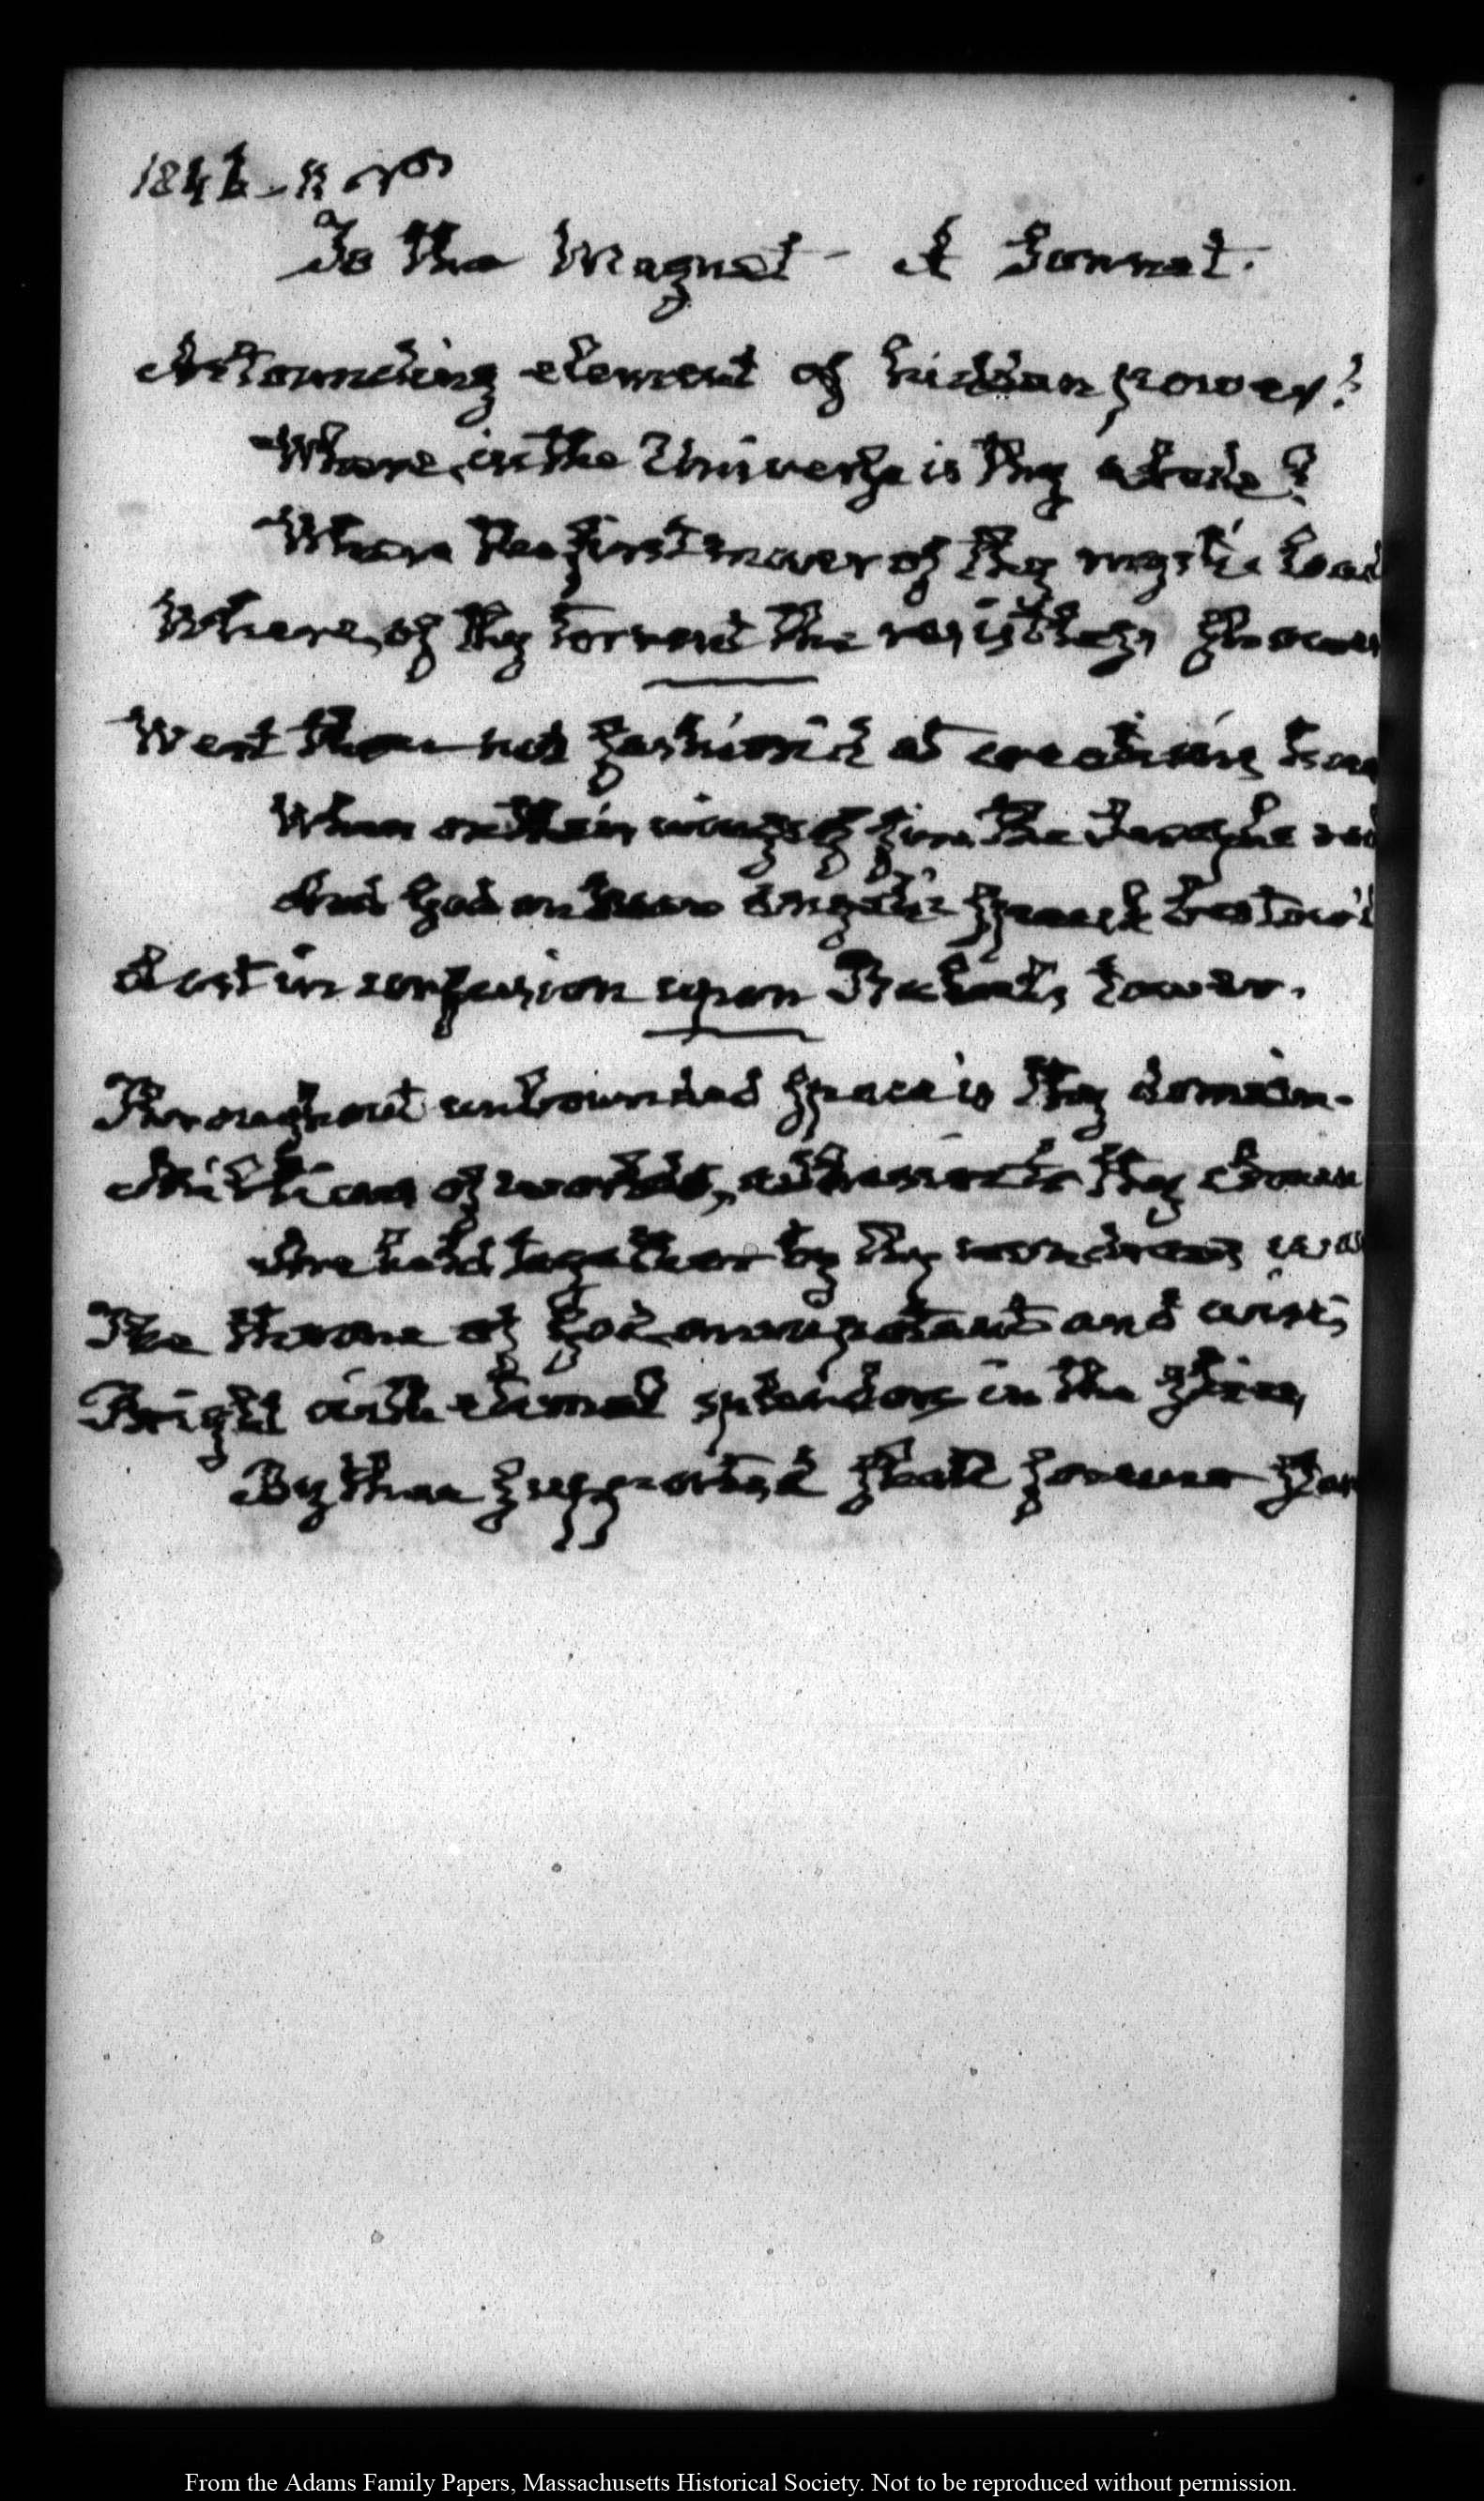 To the Magnet - A Sonnet.
Astounding element of hidden power!
Where, in the Universe is thy abode?
Where the first mover of thy mystic load
Where, of thy torrent the resistless shower
Wert thou not fashion'd at creation's hour
When on their wings of fire the Seraphs rode
And God on man angelic speech bestow'd
Lost in confusion upon Babel's tower.
Throughout unbounded space is thy domain.
Millions of worlds, adhesive to thy
Are held together by thy wondrous
The throne of God omnipotent and wise,
Bright with eternal splendors in the skies,
By thee supported shall forever
From the Adams Family Papers, Massachusetts Historical Society. Not to be reproduced without permission.